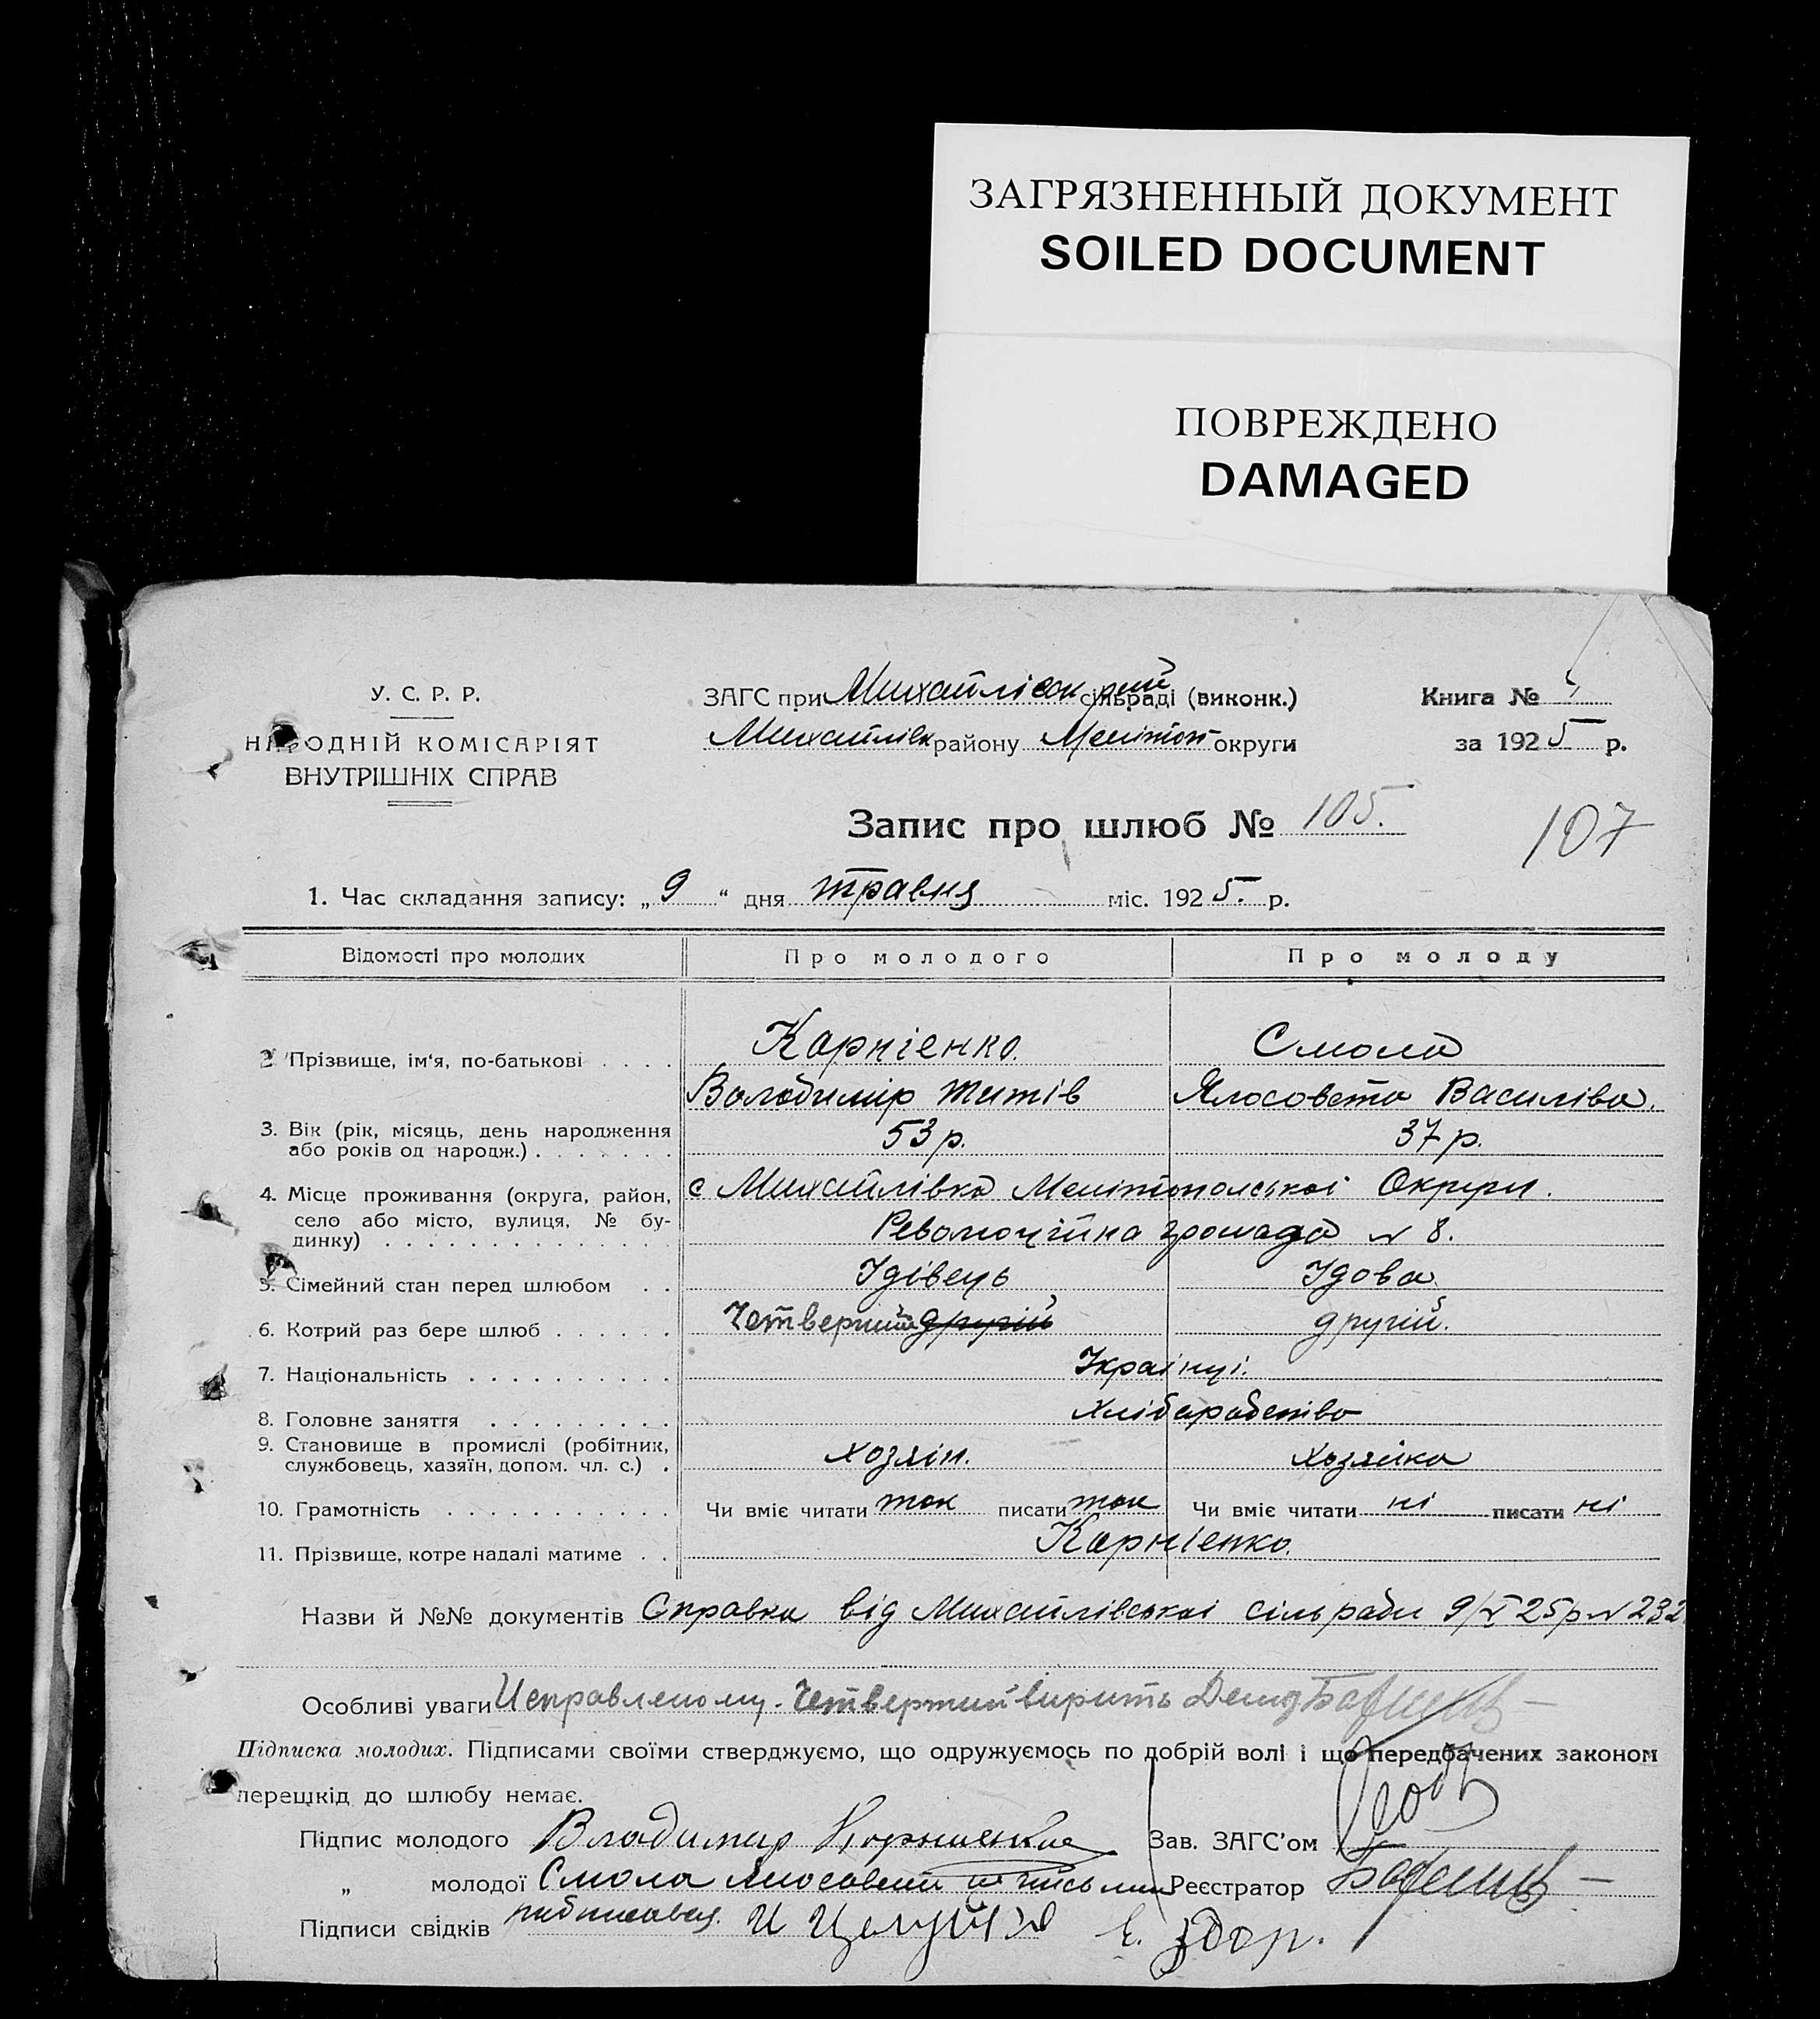 ЗАГРЯЗНЕННЫЙ ДОКУМЕНТ
SOILED DOCUMENT
ПОВРЕЖДЕНО
DAMAGED
У. С. Р. Р.
НАРОДНІЙ КОМІСАРІЯТ
ВНУТРІШНІХ СПРАВ
ЗАГС при Михайлівск сільраді (виконк.)
Михайлівк району Мелітоп округи
Книга №
за 1925 р.
Запис про шлюб № 105.
107
1. Час складання запису: „9“ дня травня міс. 1925. р.
Відомості про молодих Про молодого Про молоду
2 Прізвище, ім‘я, по-батькові . . . . Карнієнко. Смола
Володимир Титів Ялосовета Василіва.
3. Вік (рік, місяць, день народження або років од народж.) . . . . . . . 53 р. 37 р.
4. Місце проживання (округа, район, село або місто, вулиця, № будинку) . . . . . . . . . . . . . . с Михайлівка Мелітопольскоі Округи.
Революційна громада № 8.
5. Сімейний стан перед шлюбом . . Удівець Удова
6. Котрий раз бере шлюб . . . . . Четвертий другий другий.
7. Національність . . . . . . . . . . Украінці.
8. Головне заняття . . . . . . . . . Хліборобство
9. Становище в промислі (робітник, службовець, хазяїн, допом. чл. с.) . хозяін. хозяйка
10. Грамотність . . . . . . . . . . . Чи вміє читати так писати так Чи вміє читати ні писати ні
11. Прізвище, котре надалі матиме . . Карнієнко.
Назви й №№ документів Справка від Михайлівськоі сільради 9/V 25р № 232
Особливі уваги Исправленому. Четвертий вирить
Підписка молодих. Підписами своїми стверджуємо, що одружуємось по добрій волі і що передбачених законом
перешкід до шлюбу немає.
Підпис молодого Владимир Зав. ЗАГС’ом
„ молодої Смола Реєстратор
Підписи свідків